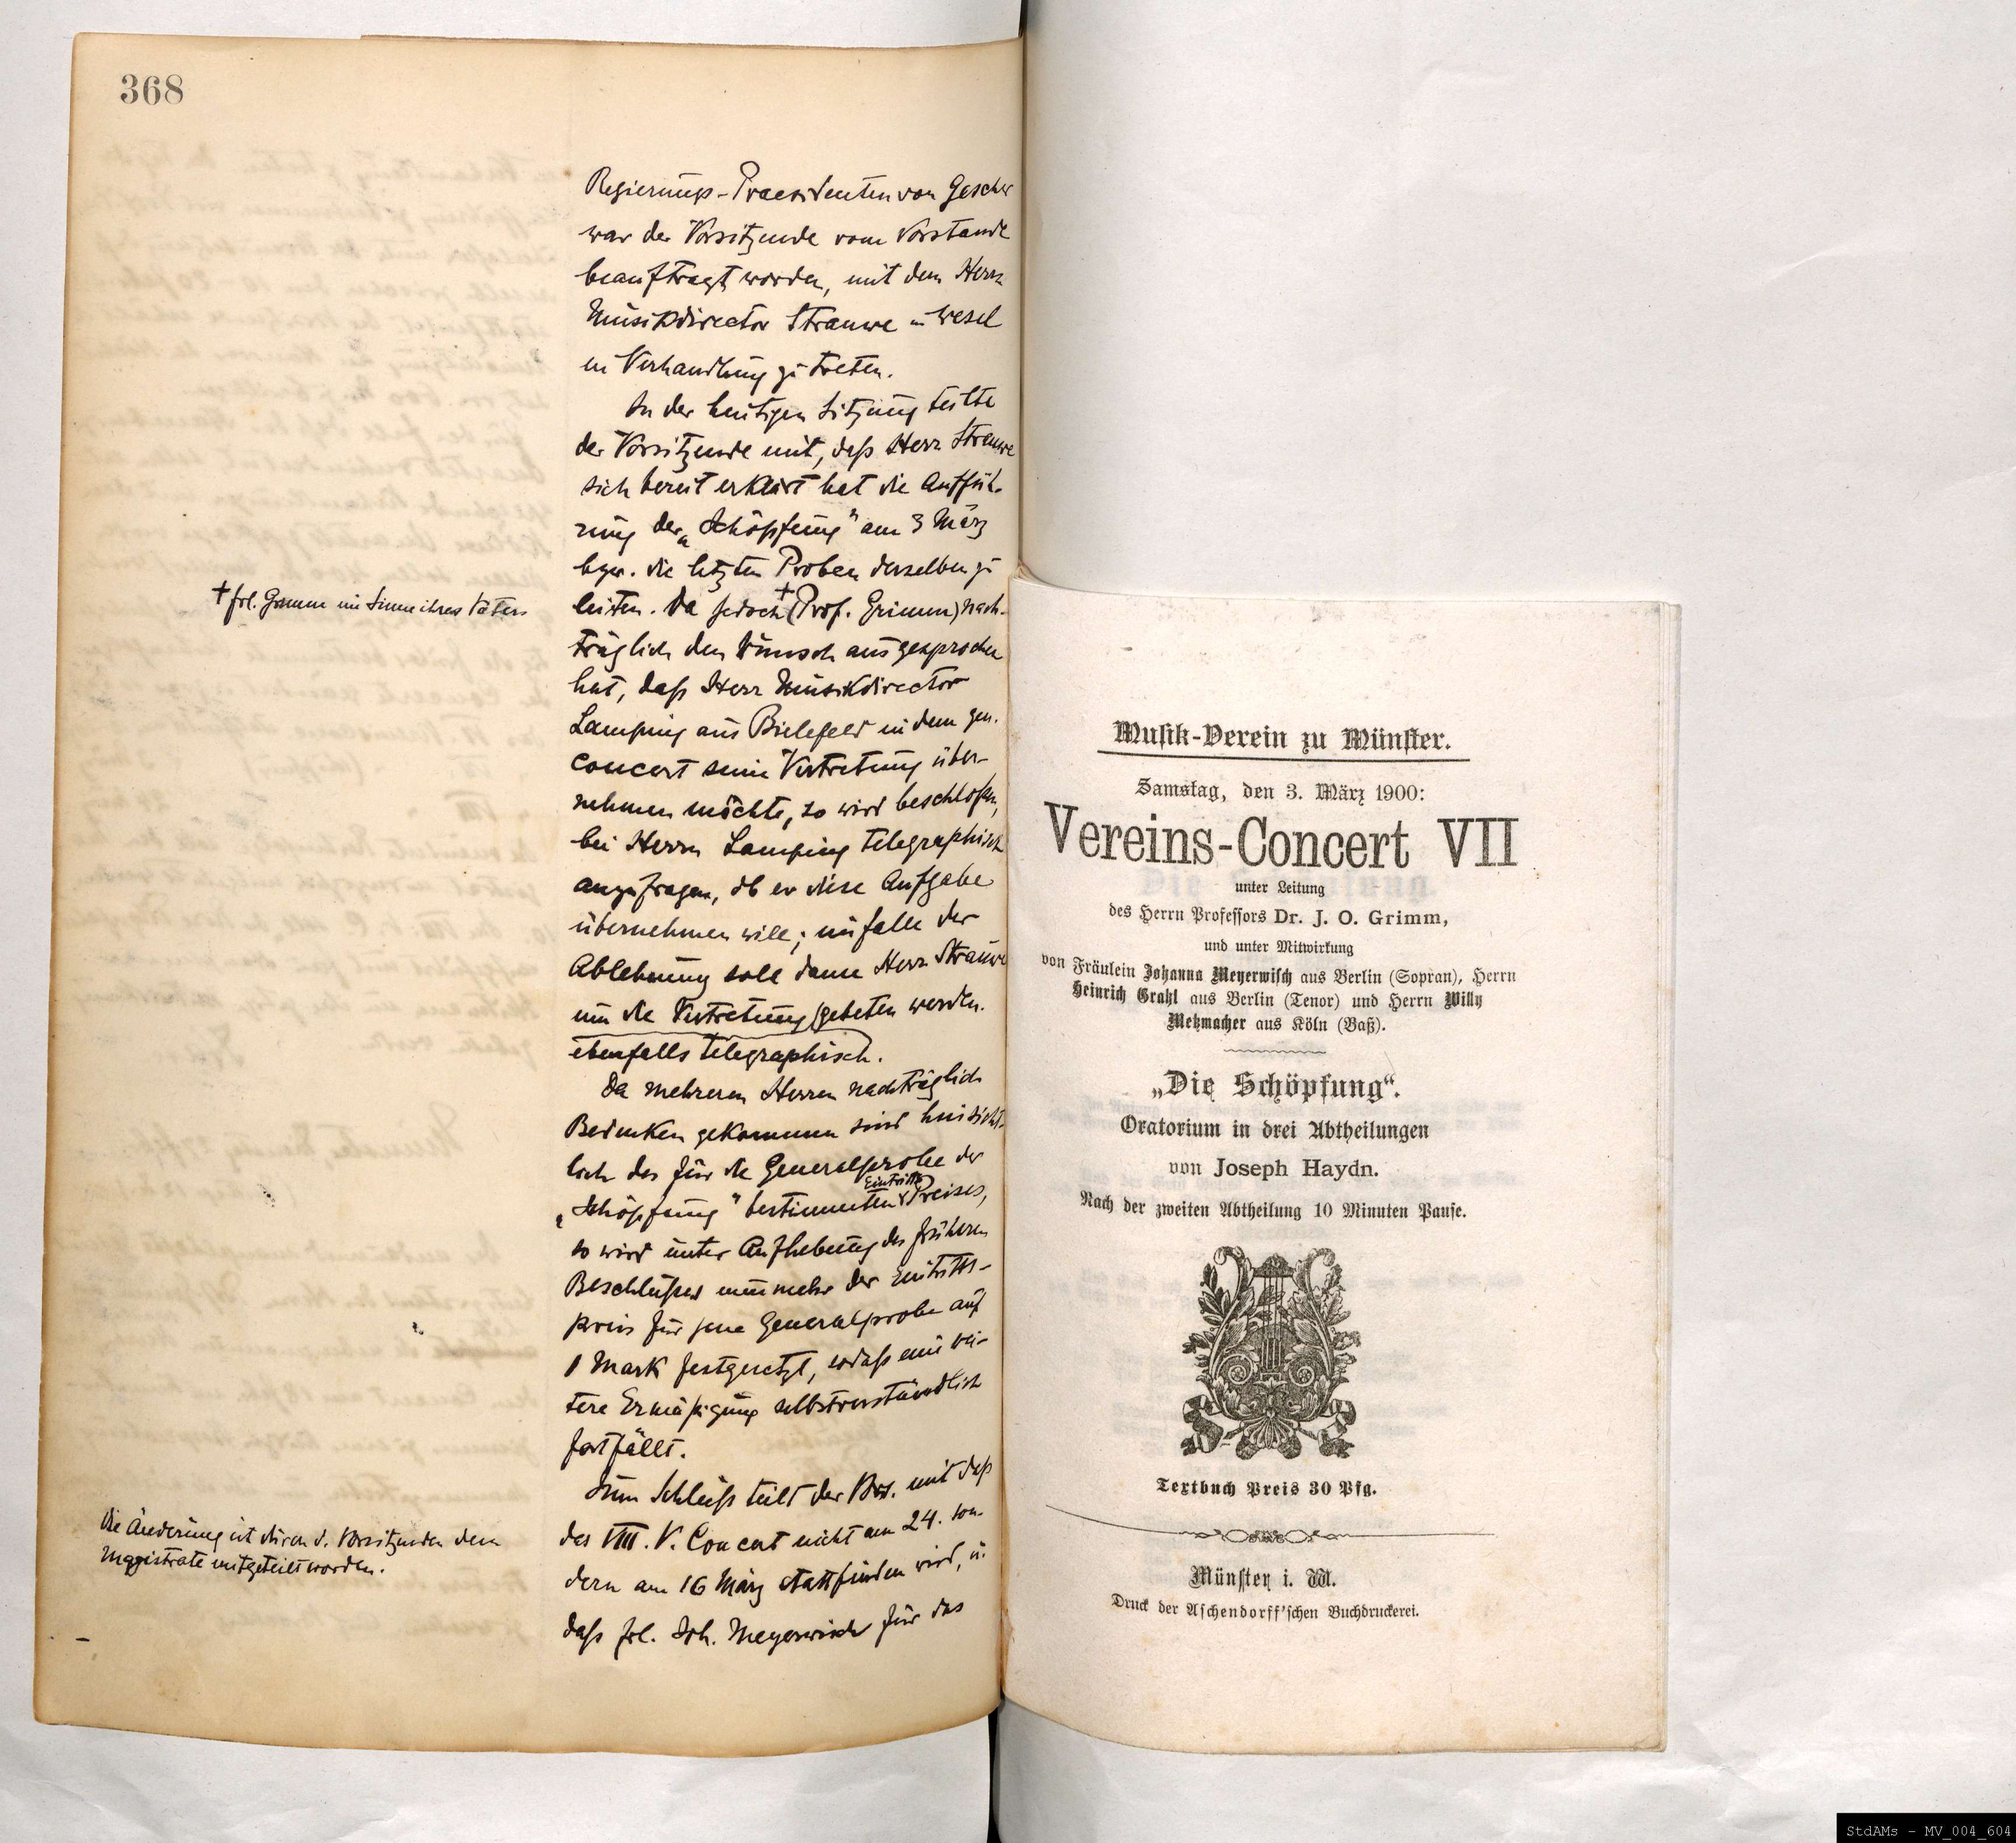 368
Regierungs-Praesidenten von Gescher
war der Vorsitzende vom Vorstande
beauftragt worden, mit dem Herrn
Musikdirector Strauwe in Wesel
in Verhandlung zu treten.
In der heutigen Sitzung teilte
der Vorsitzende mit, daß Herr Strauwe
sich bereit erklärt hat die Auffüh-
rung der „Schöpfung" am 3 März
bzw. die letzten Proben derselben zu
† Frl. Grimm im Sinne ihres Vaters
leiten. Da jedoch † (Prof. Grimm) nach-
träglich den Wunsch ausgesprochen
hat, daß Herr Musikdirector
Lamping aus Bielefeld in dem gen.
Concert seine Vertretung über-
nehmen möchte, so wird beschloßen,
bei Herrn Lamping telegraphisch
anzufragen, ob er diese Aufgabe
übernehmen will; im falle der
Ablehnung soll dann Herr Strauwe
um die Vertretung gebeten werden.
ebenfalls telegraphisch.
Da mehreren Herren nachträglich
Bedenken gekommen sind hinsicht-
lich des für die Generalprobe der
„Schöpfung" bestimmten Eintritts Preises,
so wird unter Aufhebung des früheren
Beschlußes nunmehr der Eintritts-
preis für jene Generalprobe auf
1 Mark festgesetzt, sodaß eine wei-
tere Ermäßigung selbstverständlich
fortfällt.
Zum Schluß teilt der Vors. mit daß
das VIII. V. Concert nicht am 24. son-
dern am 16 März stattfinden wird, u.
daß Frl. Joh. Meyerwisch für das
Die Änderung ist durch d. Vorsitzenden dem
Magistrate mitgeteilt worden.
Musik-Verein zu Münster.
Samstag, den 3. März 1900:
Vereins-Concert VII
unter Leitung
des Herrn Professors Dr. J. O. Grimm,
und unter Mitwirkung
von Fräulein Johanna Meyerwisch aus Berlin (Sopran), Herrn
Heinrich Grahl aus Berlin (Tenor) und Herrn Willy
Metzmacher aus Köln (Baß).
„Die Schöpfung“.
Oratorium in drei Abtheilungen
von Joseph Haydn.
Nach der zweiten Abtheilung 10 Minuten Pause.
Textbuch Preis 30 Pfg.
Münster i. W.
Druck der Aschendorff'schen Buchdruckerei.
StdAMs - MV_004_604